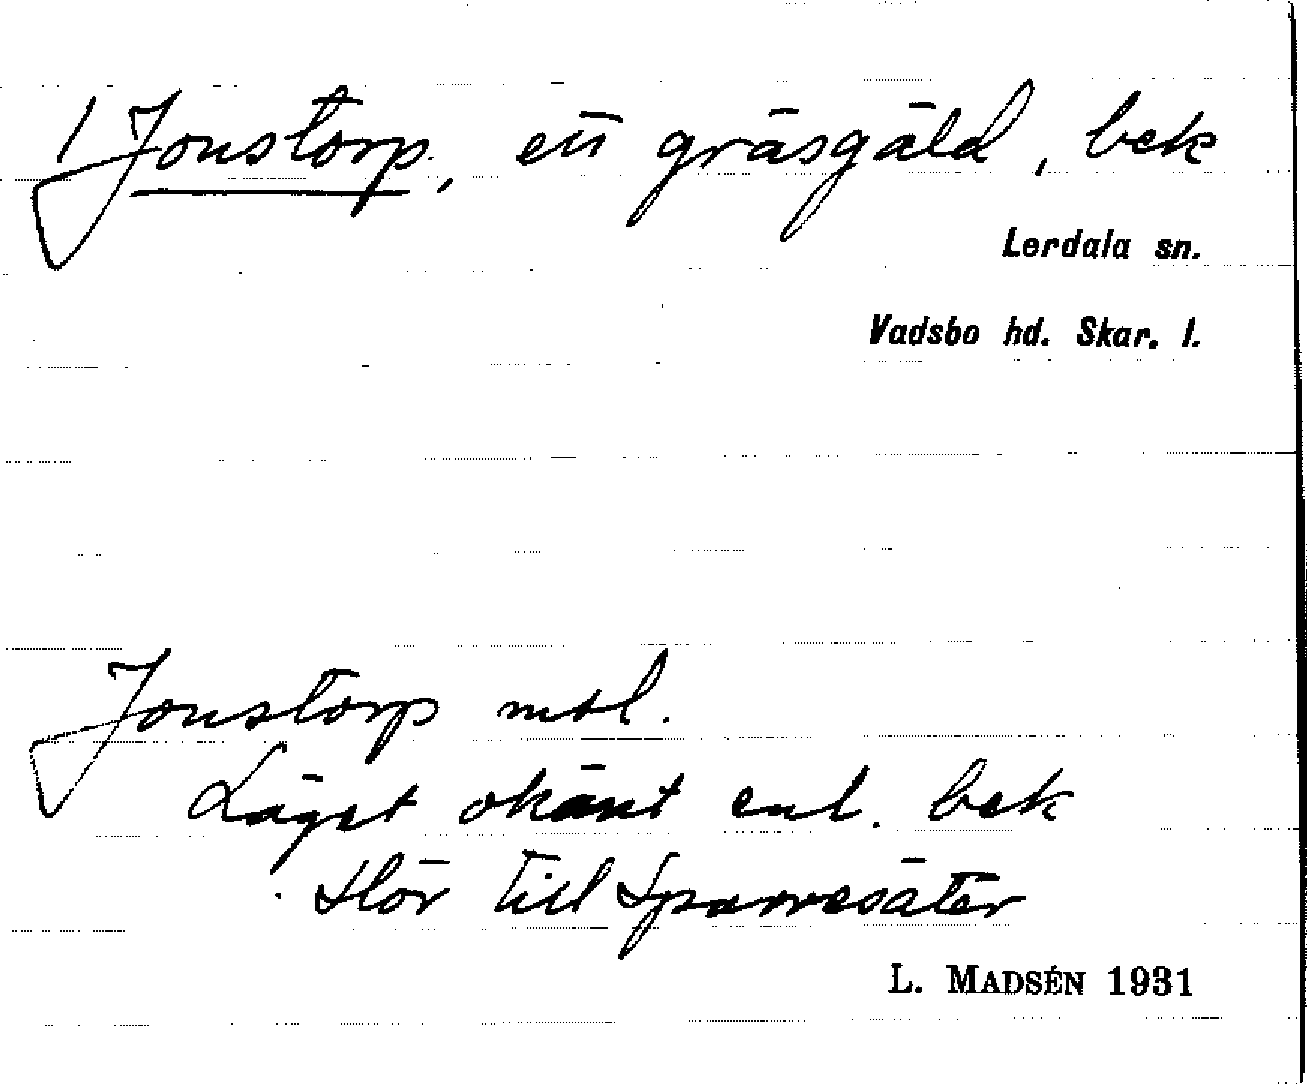 / Jonstorp, ett gräsgäld, bek
Lerdala sn.
Vadsbo hd. Skar. l.
Jonstorp mtl.
Läget okänt enl. bek
Hör till Sparresäter
L. MADSÉN 1931